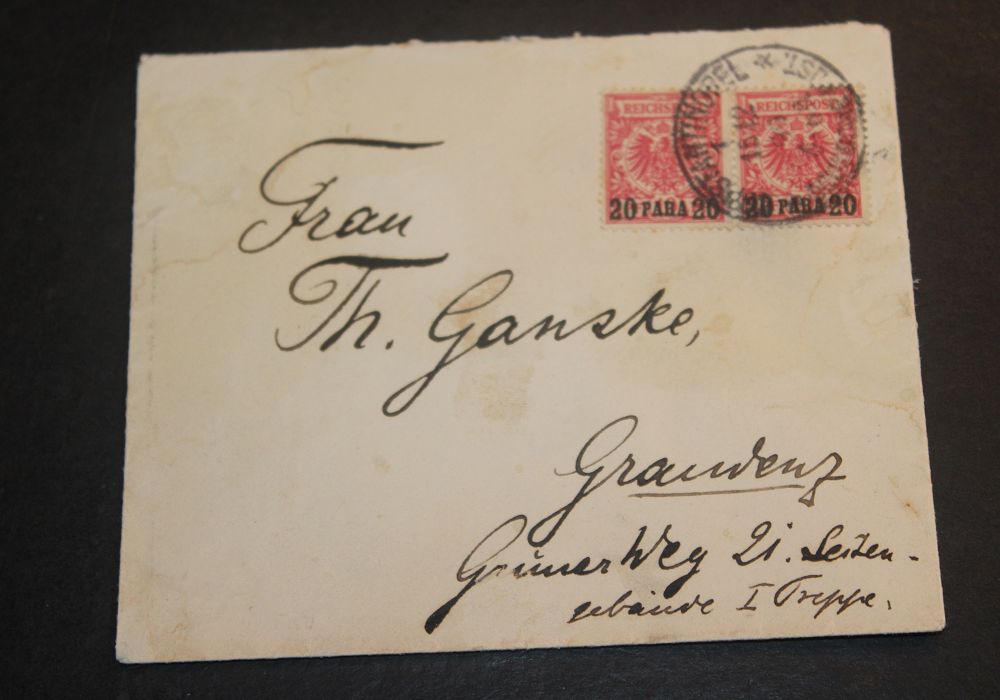 REICHSPOST REICHSPOST
20 PARA 20 20 PARA 20
Frau
Th. Ganske,
Graudenz
Grüner Weg 21. Seiten-
gebäude I Treppe.